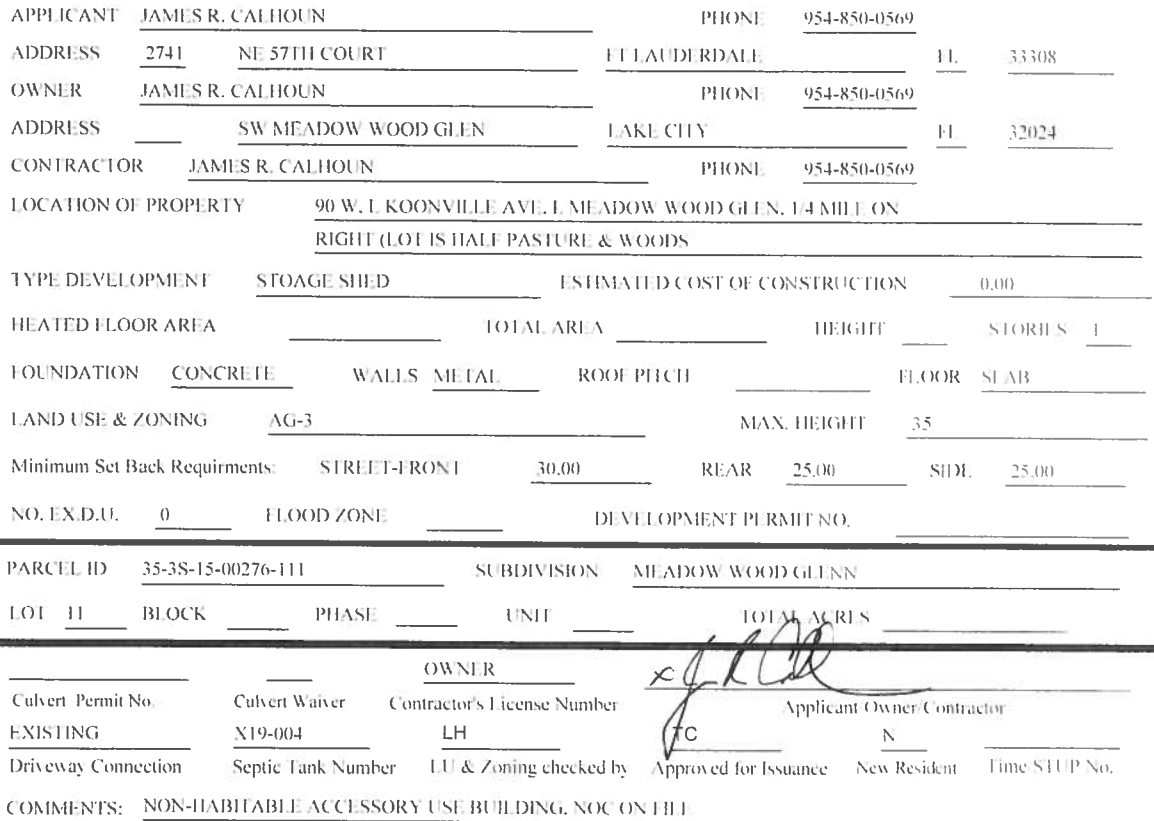 APPLICANT JAMES R. CALHOUN PHONE 954-850-0569
ADDRESS 2741 NE 57TH COURT FT LAUDERDALE FL 33308
OWNER JAMES R. CALHOUN PHONE 954-850-0569
ADDRESS SW MEADOW WOOD GLEN LAKE CITY FL 32024
CONTRACTOR JAMES R. CALHOUN PHONE 954-850-0569
LOCATION OF PROPERTY 90 W. L KOONVILLE AVE. L MEADOW WOOD GLEN. 1/4 MILE ON
RIGHT (LOT IS HALF PASTURE & WOODS
TYPE DEVELOPMENT STOAGE SHED ESTIMATED COST OF CONSTRUCTION 0.00
HEATED FLOOR AREA TOTAL AREA HEIGHT STORIES 1
FOUNDATION CONCRETE WALLS METAL ROOF PITCH FLOOR SLAB
LAND USE & ZONING AG-3 MAX. HEIGHT 35
Minimum Set Back Requirments: STREET-FRONT 30.00 REAR 25.00 SIDE 25.00
NO. EX.D.U. 0 FLOOD ZONE DEVELOPMENT PERMIT NO.
PARCEL ID 35-3S-15-00276-111 SUBDIVISION MEADOW WOOD GLENN
LOT 11 BLOCK PHASE UNIT TOTAL ACRES
OWNER x
Culvert Permit No. Culvert Waiver Contractor's License Number Applicant/Owner/Contractor
EXISTING X19-004 LH TC N
Driveway Connection Septic Tank Number LU & Zoning checked by Approved for Issuance New Resident Time/STUP No.
COMMENTS: NON-HABITABLE ACCESSORY USE BUILDING. NOC ON FILE